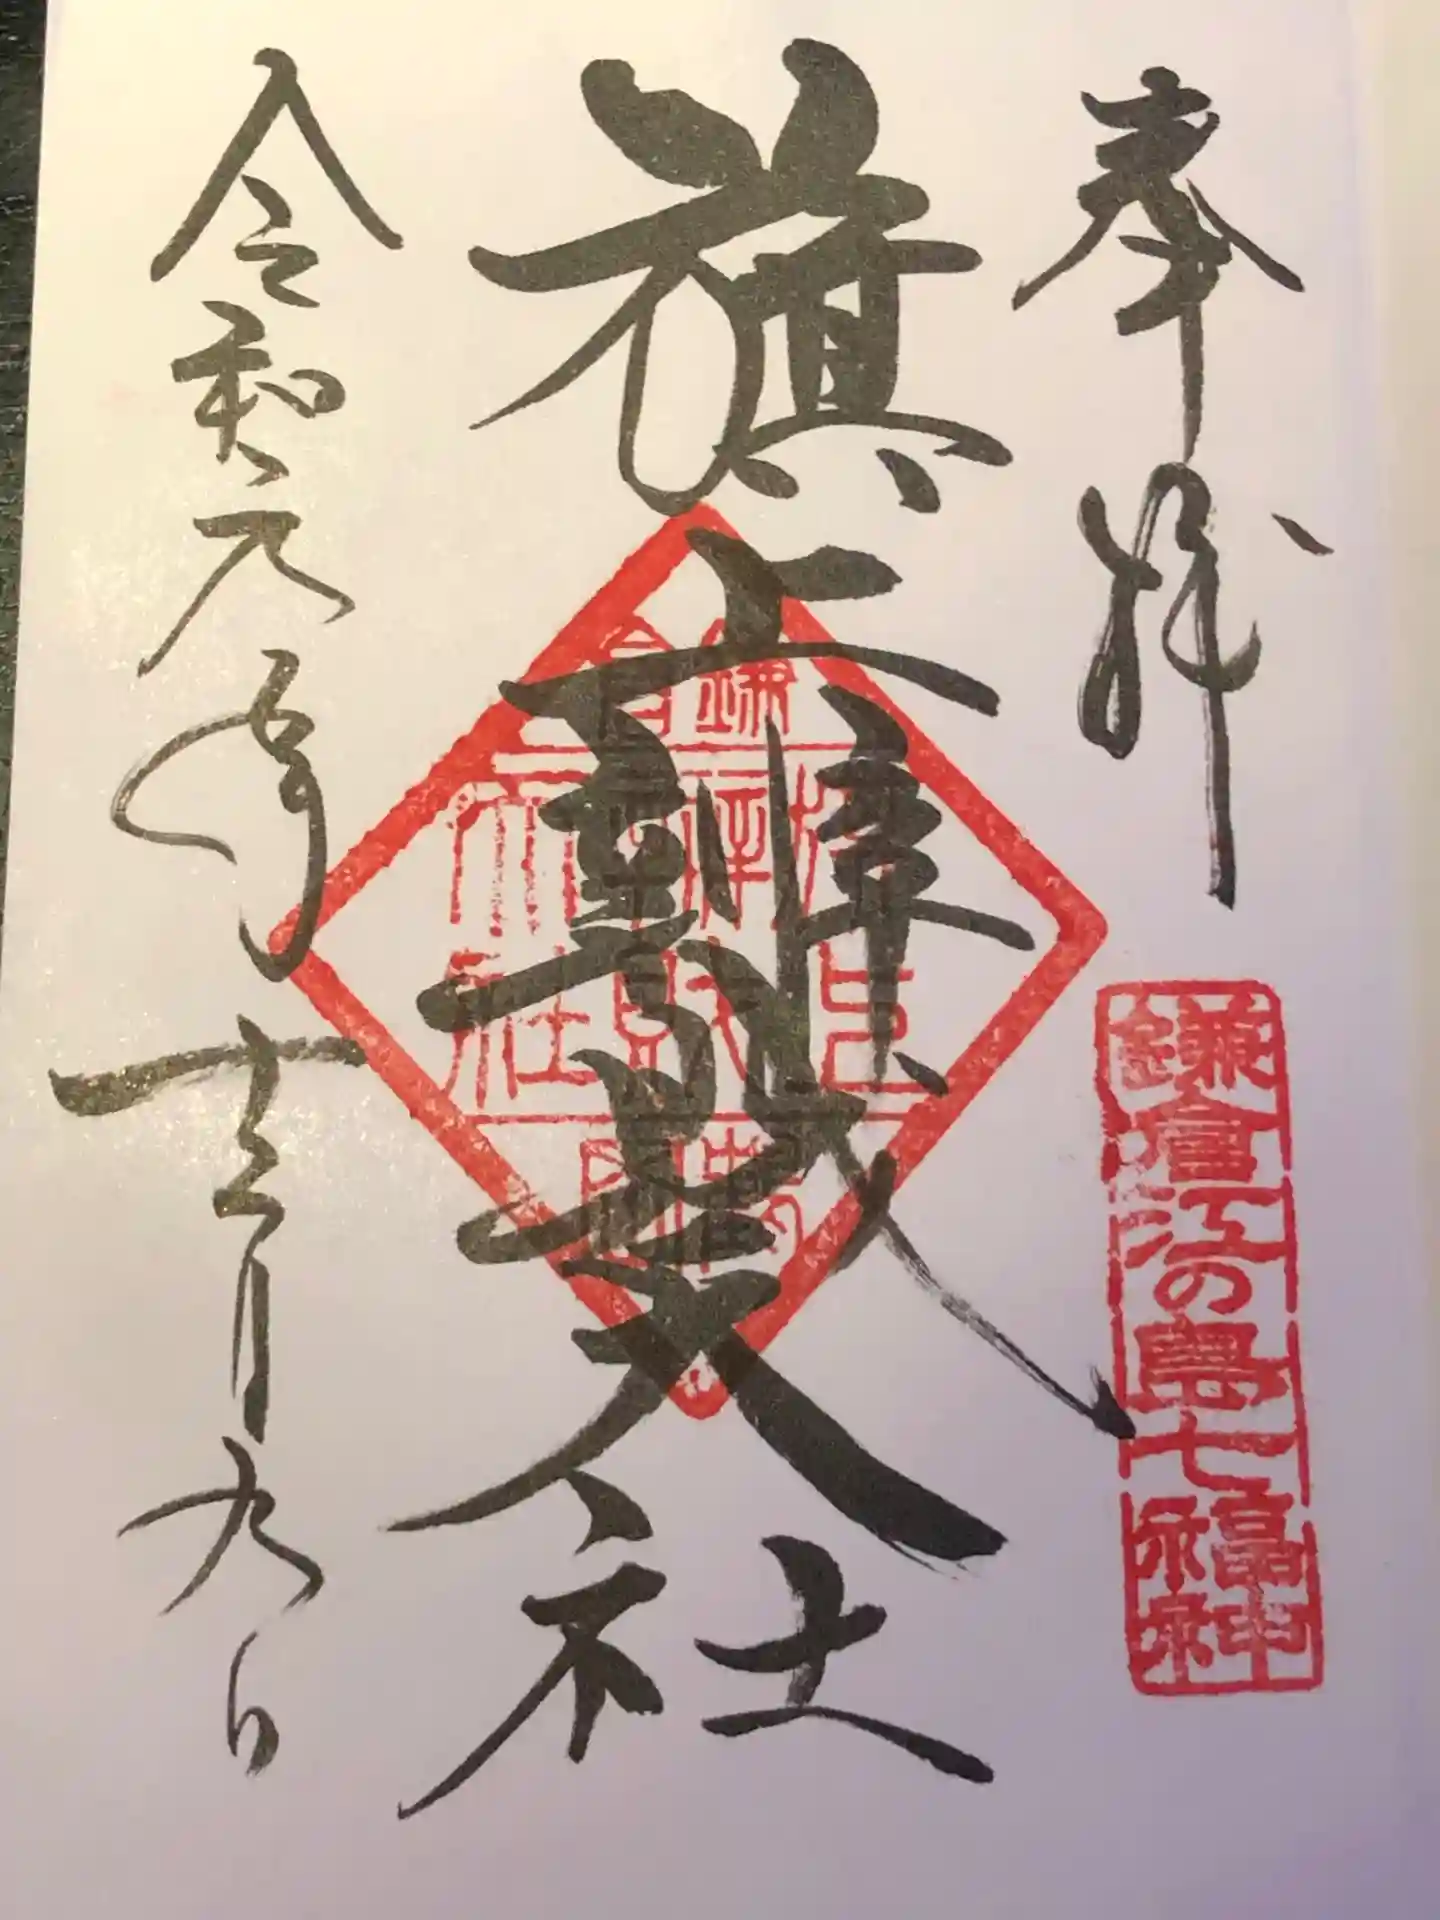 奉拝
鎌倉江の島七福神
旗上弁財天社
令和元年十二月九日